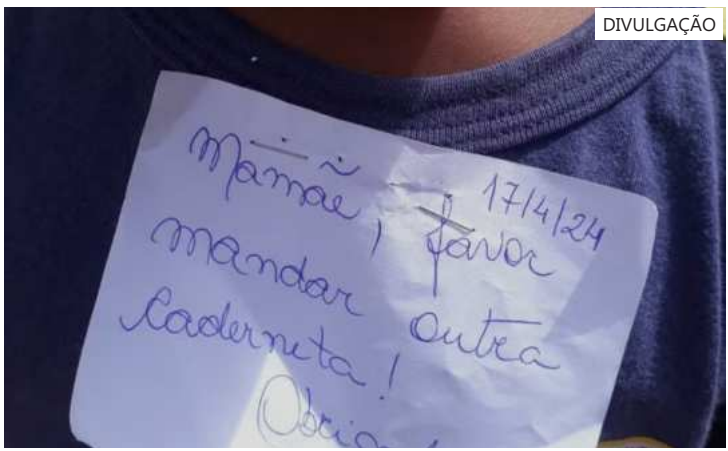 DIVULGAÇÃO
17/4/24
Mamãe, favor
mandar outra
caderneta!